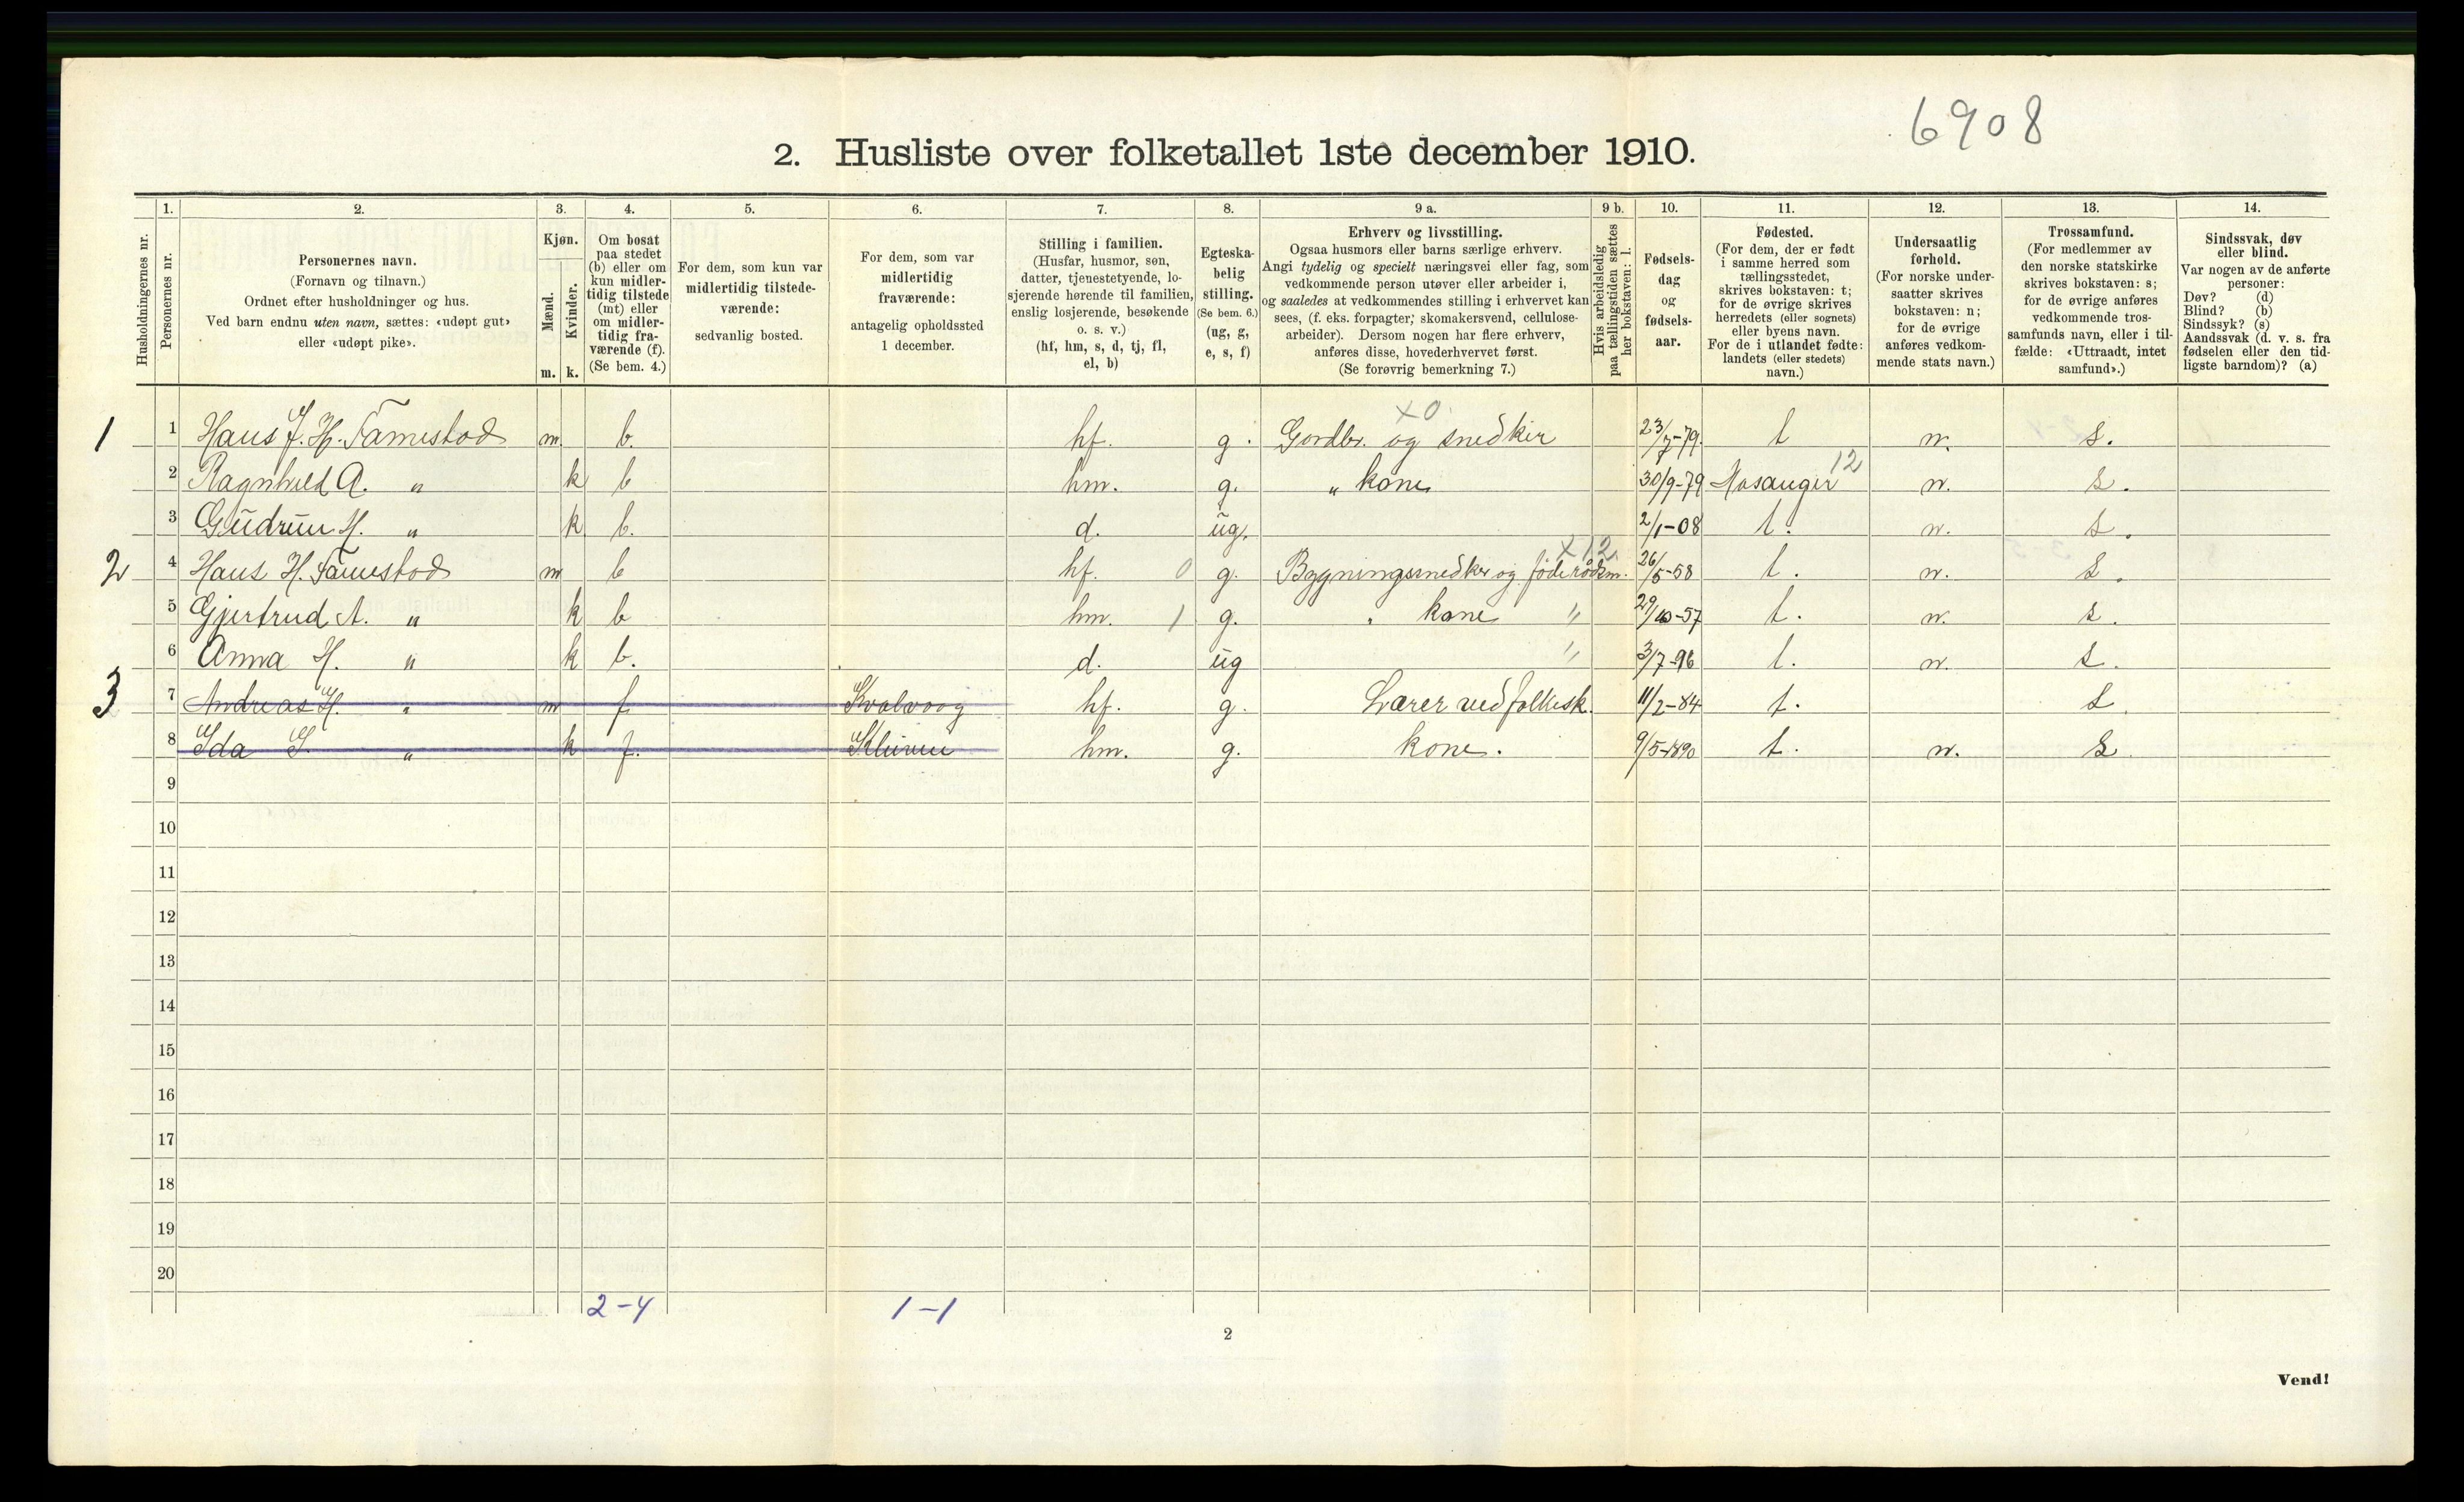 6908
2. Husliste over folketallet 1ste december 1910.
Husholdningernes nr.
1.
Personernes nr.
2.
Personernes navn.
(Fornavn og tilnavn.)
Ordnet efter husholdninger og hus.
Ved barn endnu uten navn, sættes: «udøpt gut»
eller «udøpt pike».
3.
Kjøn.
Mænd.
Kvinder.
m. k.
4.
Om bosat
paa stedet
(b) eller om
kun midler-
tidig tilstede
(mt) eller
om midler-
tidig fra-
værende (f).
(Se bem. 4.)
5.
For dem, som kun var
midlertidig tilstede-
værende:
sedvanlig bosted.
6.
For dem, som var
midlertidig
fraværende:
antagelig opholdssted
1 december.
7.
Stilling i familien.
(Husfar, husmor, søn,
datter, tjenestetyende, lo-
sjerende hørende til familien,
enslig losjerende, besøkende
o. s. v.)
(hf, hm, s, d, tj, fl,
el, b)
8.
Egteska-
belig
stilling.
(Se bem. 6.)
(ug, g,
e, s, f)
9 a.
Erhverv og livsstilling.
Ogsaa husmors eller barns særlige erhverv.
Angi tydelig og specielt næringsvei eller fag, som
vedkommende person utøver eller arbeider i,
og saaledes at vedkommendes stilling i erhvervet kan
sees, (f. eks. forpagter, skomakersvend, cellulose-
arbeider). Dersom nogen har flere erhverv,
anføres disse, hovederhvervet først.
(Se forøvrig bemerkning 7.)
9 b.
Hvis arbeidsledig
paa tællingstiden sættes
her bokstaven: l.
10.
Fødsels-
dag
og
fødsels-
aar.
11.
Fødested.
(For dem, der er født
i samme herred som
tællingsstedet,
skrives bokstaven: t;
for de øvrige skrives
herredets (eller sognets)
eller byens navn.
For de i utlandet fødte:
landets (eller stedets)
navn.)
12.
Undersaatlig
forhold.
(For norske under-
saatter skrives
bokstaven: n;
for de øvrige
anføres vedkom-
mende stats navn.)
13.
Trossamfund.
(For medlemmer av
den norske statskirke
skrives bokstaven: s;
for de øvrige anføres
vedkommende tros-
samfunds navn, eller i til-
fælde: «Uttraadt, intet
samfund».)
14.
Sindssvak, døv
eller blind.
Var nogen av de anførte
personer:
Døv? (d)
Blind? (b)
Sindssyk? (s)
Aandssvak (d. v. s. fra
fødselen eller den tid-
ligste barndom)? (a)
x0
1 1 Hans J. H. Tamestod m b. hf. g. Gordbr. og snedker 23/7-79. t n. s.
2 Ragnhild A. " k b hm. g. " kone 30/9-79 Hosanger 12 n. s.
3 Gudrun H. " k b. d. ug. 2/1-08 t. n. s.
x12
2 4 Hans H. Tamestod m b hf. 0 g. Bygningssnedker og føderådsm. 26/5-58 t. n. s.
5 Gjertrud A. " k b hm. 1 g. " kone " 29/10-57 t. n. s.
6 Anna H. " k b. d. ug " 3/7-96 t. n. s.
3 7 Andreas H. " m f Kvalvaag hf. g. Lærer ved folkesk. 11/2-84 t. s
8 Ida S. " k f. hm. g. kone. 9/5-1890 t. n. s.
9
10
11
12
13
14
15
16
17
18
19
20
2-4 1-1
2
Vend!